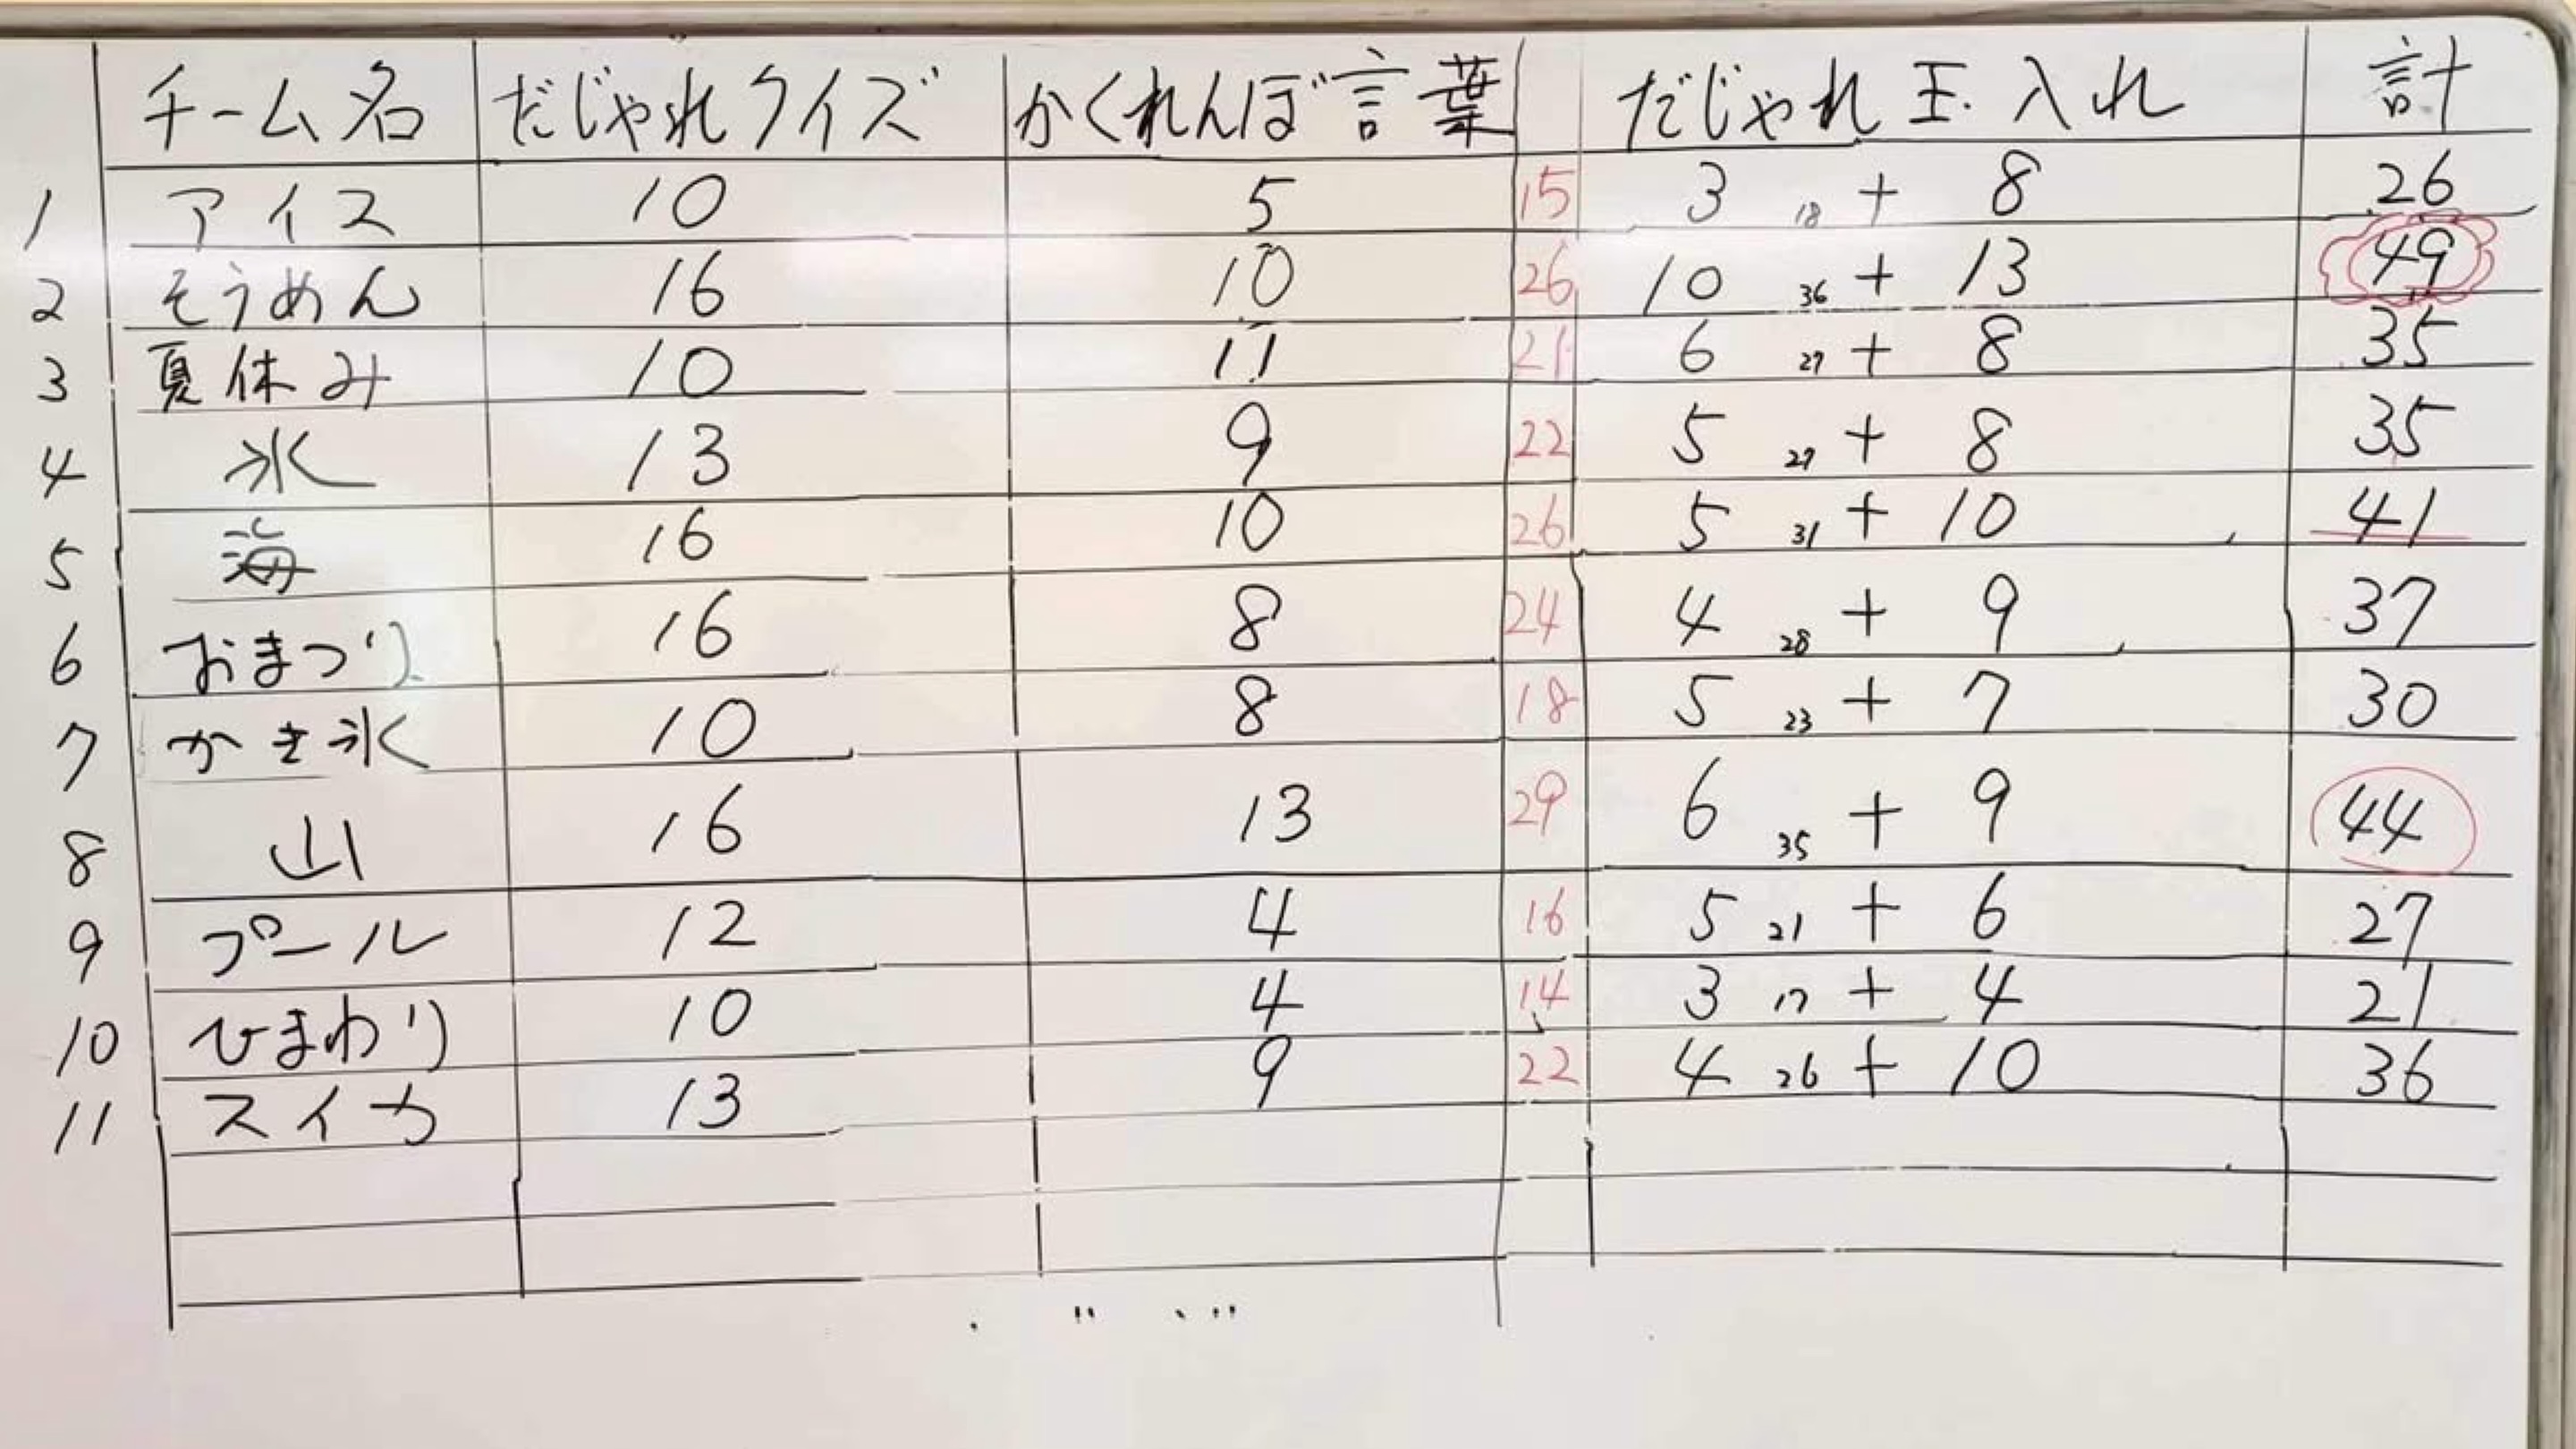 チーム名 だじゃれクイズ かくれんぼ言葉 だじゃれ玉入れ 計
1 アイス 10 5 15 3 18 + 8 26
2 そうめん 16 10 26 10 36 + 13 49
3 夏休み 10 11 21 6 27 + 8 35
4 氷 13 9 22 5 27 + 8 35
5 海 16 10 26 5 31 + 10 41
6 おまつり 16 8 24 4 28 + 9 37
7 かき氷 10 8 18 5 23 + 7 30
8 山 16 13 29 6 35 + 9 44
9 プール 12 4 16 5 21 + 6 27
10 ひまわり 10 4 14 3 17 + 4 21
11 スイカ 13 9 22 4 26 + 10 36